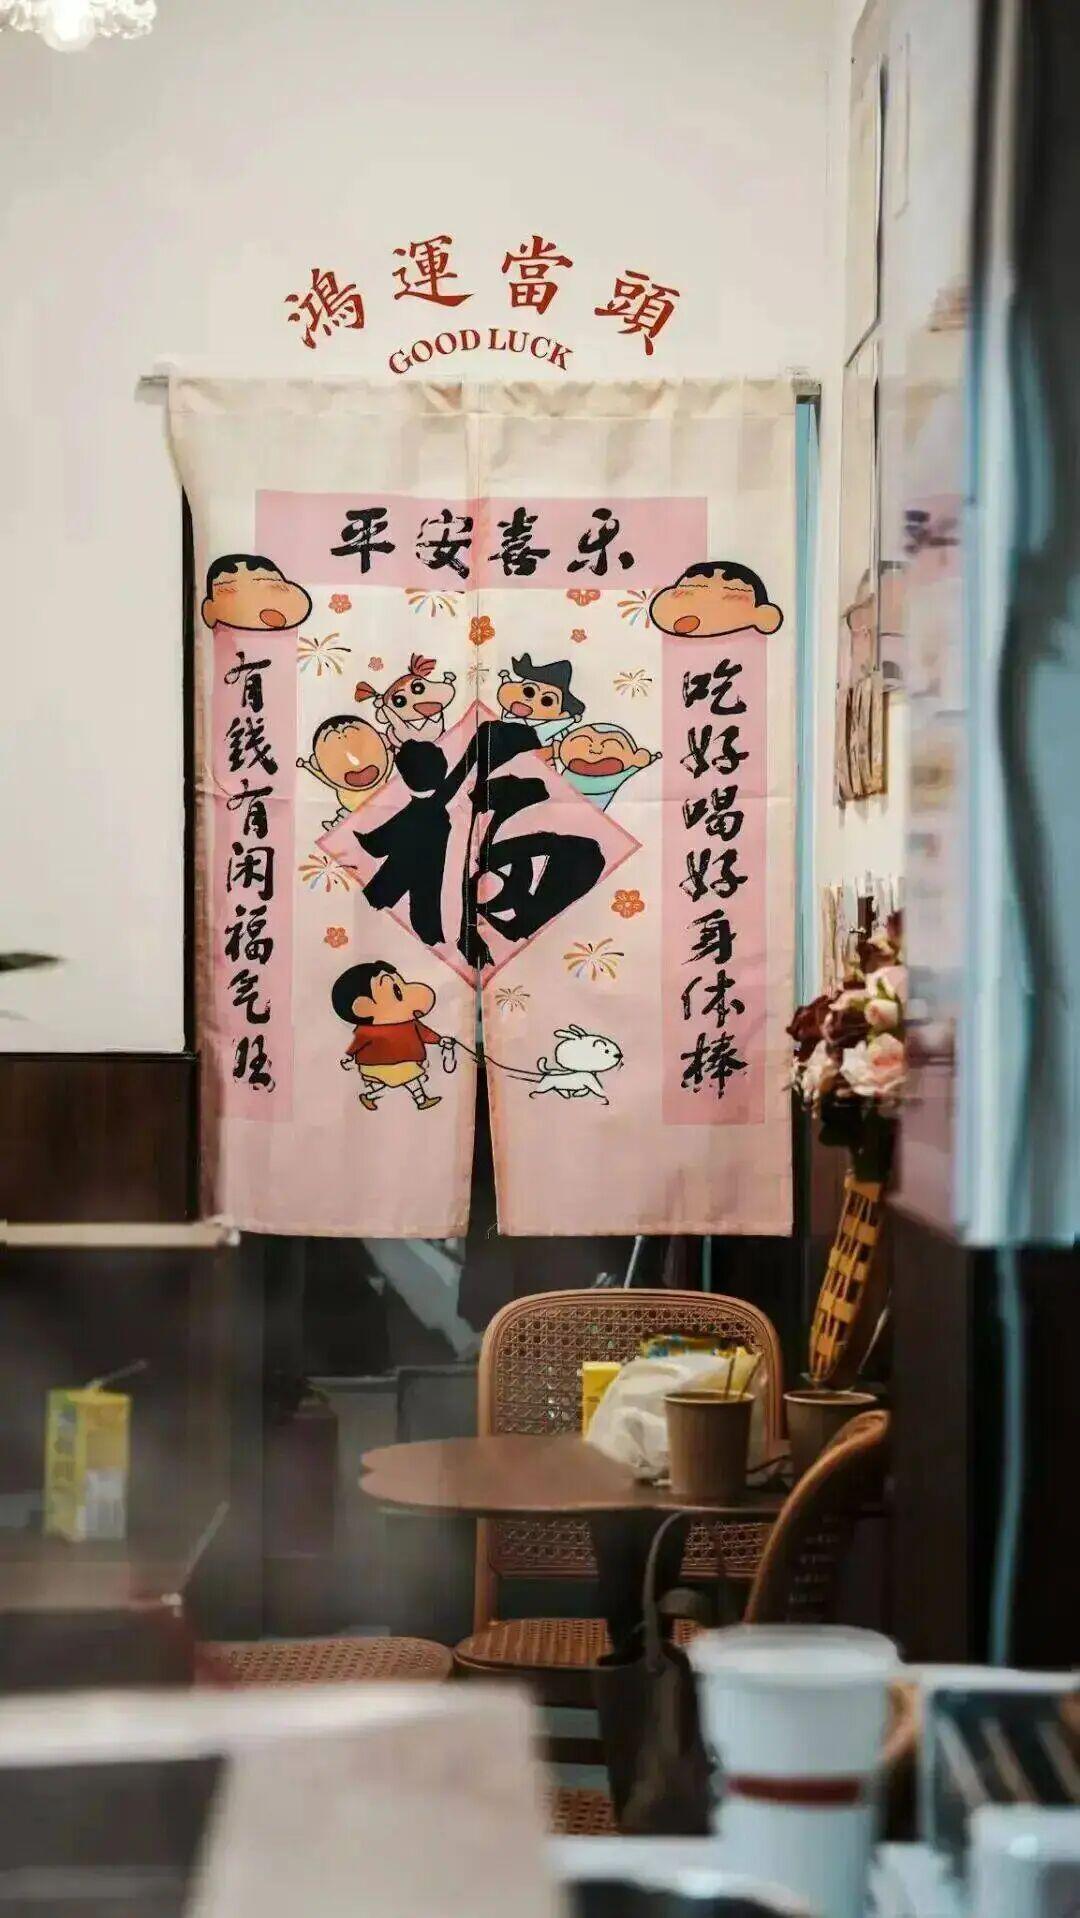 鴻運當頭
GOOD LUCK
平安喜乐
吃好喝好身体棒
有錢有闲福气旺
福